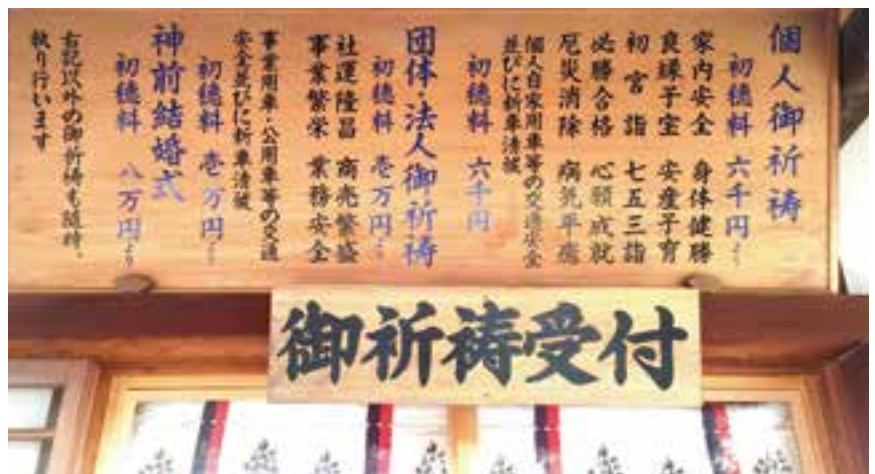 個人御祈祷
初穂料 六千円より
家内安全 身体健勝
良縁子宝 安産子育
初宮詣 七五三詣
必勝合格 心願成就
厄災消除 病気平癒
個人自家用車等の交通安全
並びに新車清祓
初穂料 六千円
団体・法人御祈祷
初穂料 壱万円より
社運隆昌 商売繁盛
事業繁栄 業務安全
事業用車・公用車等の交通
安全並びに新車清祓
初穂料 壱万円より
神前結婚式
初穂料 八万円より
右記以外の御祈祷も随時、
執り行います
御祈祷受付